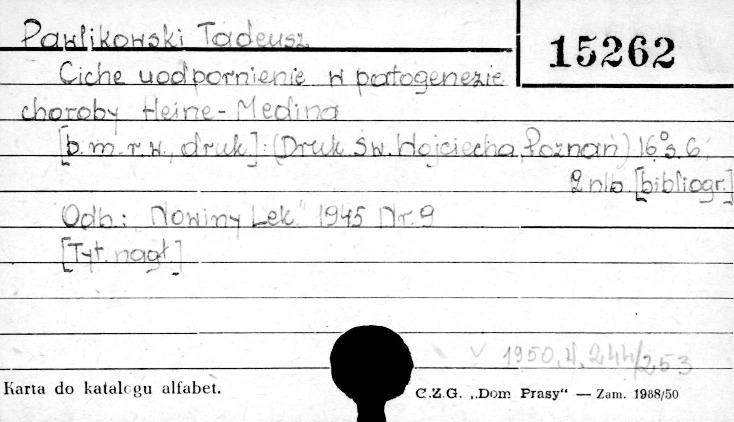 Pawlikowski Tadeusz
15262
Ciche uodpornienie w patogenezie
choroby Heine-Medina
[b.m.r.w., druk]: (Druk. Św. Wojciecha, Poznań) 16° s. 6,
2 nlb. [bibliogr.]
Odb.: "Nowiny Lek." 1945 Nr. 9
[Tyt. nagł.]
V 1950, 4, 244/253
Karta do katalogu alfabet.
C.Z.G. „Dom Prasy“ — Zam. 1988/50